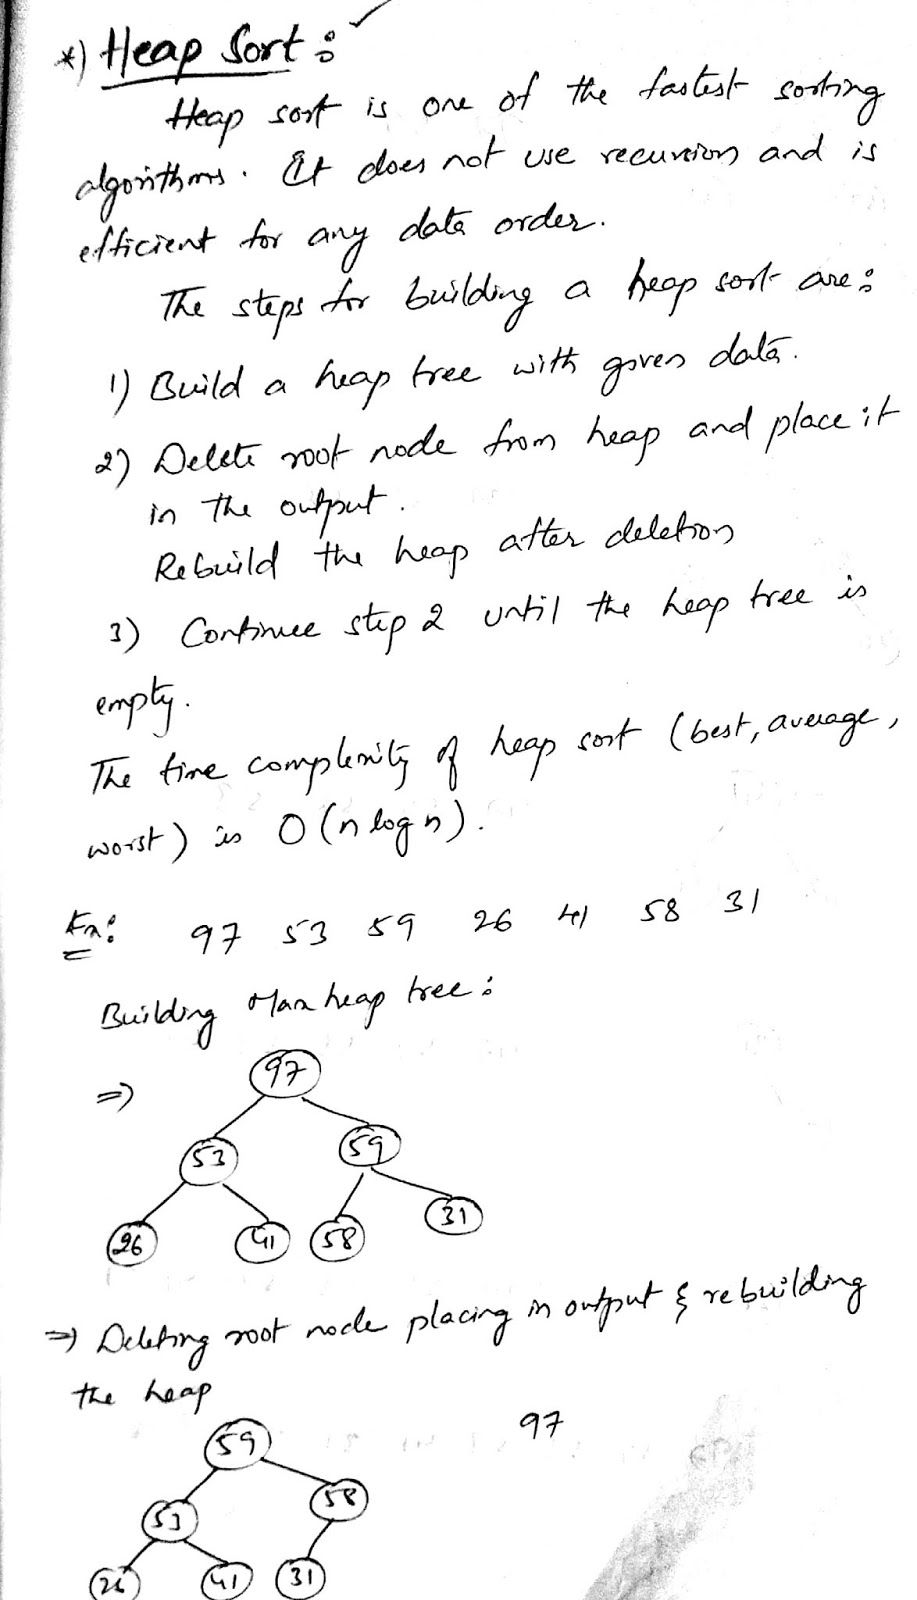 *) Heap Sort :
Heap sort is one of the fastest sorting
algorithms. It does not use recursion and is
efficient for any data order.
The steps for building a heap sort are :
1) Build a heap tree with given data.
2) Delete root node from heap and place it
in the output.
Rebuild the heap after deletion
3) Continue step 2 until the heap tree is
empty.
The time complexity of heap sort (best, average,
worst) is O(n log n).
Ex: 97 53 59 26 41 58 31
Building Max heap tree :
⇒ 97
53 59
26 41 58 31
⇒ Deleting root node placing in output & rebuilding
the heap
59 97
53 58
26 41 31